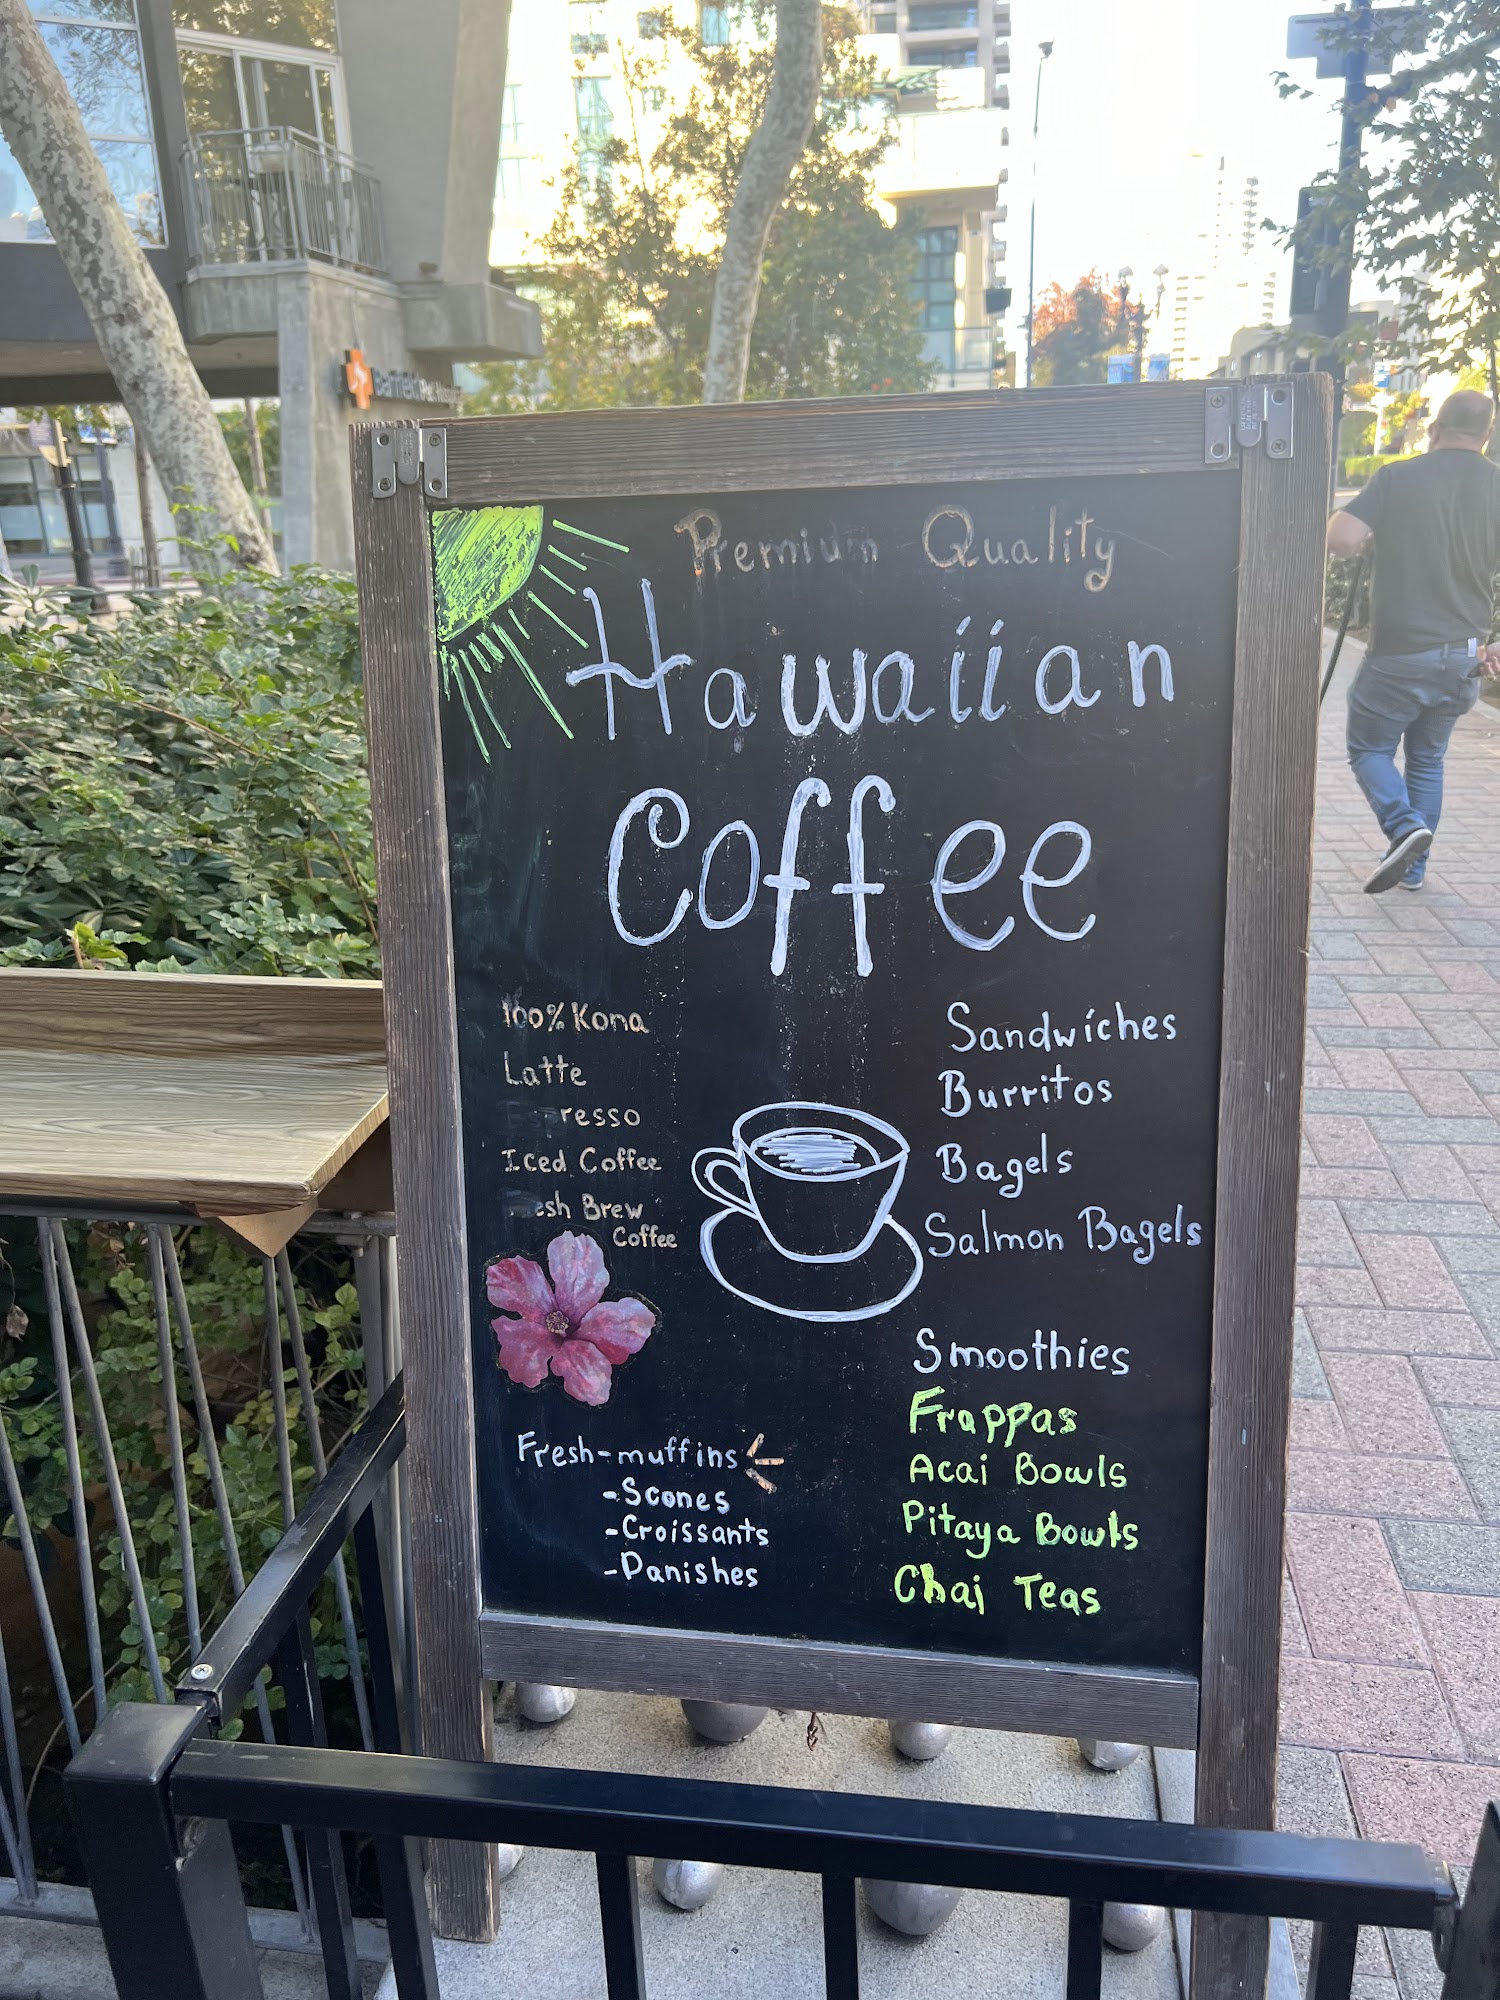 Premium Quality
Hawaiian
Coffee
100% Kona
Latte
Espresso
Iced Coffee
Fresh Brew
Coffee
Sandwiches
Burritos
Bagels
Salmon Bagels
Smoothies
Frappas
Acai Bowls
Pitaya Bowls
Chai Teas
Fresh-muffins
-Scones
-Croissants
-Danishes